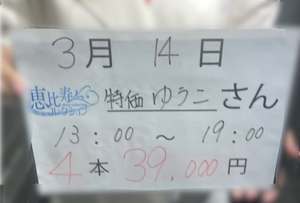 3月 14日
恵比寿 特価 ゆうこ さん
13:00 ~ 19:00
4本 39.000円